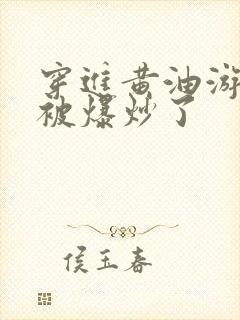 穿进黄油游
被爆炒了
侯玉春